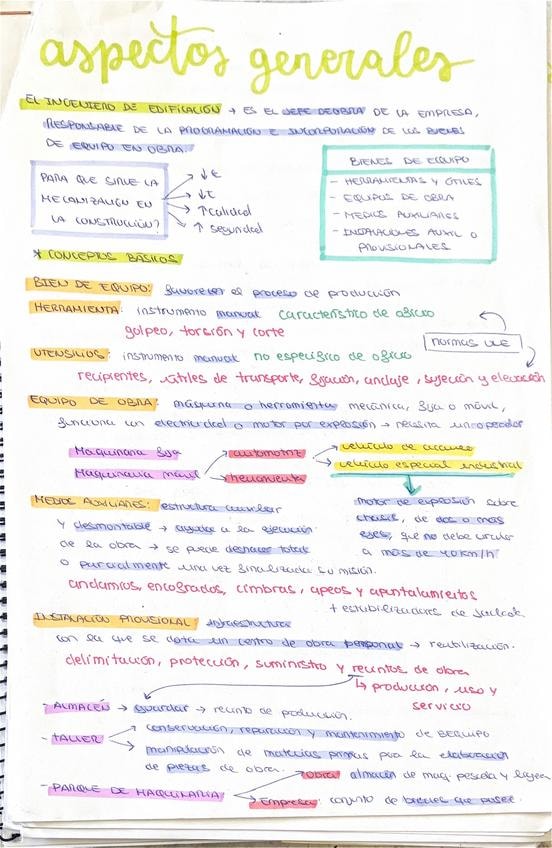 aspectos generales
EL INGENIERO DE EDIFICACIÓN → ES EL JEFE DE OBRA DE LA EMPRESA,
RESPONSABLE DE LA PROGRAMACIÓN E INCORPORACIÓN DE LOS BIENES
DE EQUIPO EN OBRA.
PARA QUE SIRVE LA
MECANIZACIÓN EN
LA CONSTRUCCIÓN?
↓€
↓t
↑calidad
↑ seguridad
BIENES DE EQUIPO
- HERRAMIENTAS Y ÚTILES
- EQUIPOS DE OBRA
- MEDIOS AUXILIARES
- INSTALACIONES AUXIL O
PROVISIONALES
* CONCEPTOS BÁSICOS
BIEN DE EQUIPO: favorecer el proceso de producción
HERRAMIENTA: instrumento manual característico de oficio
golpeo, torsión y corte
normas UNE
UTENSILIOS: instrumento manual no específico de oficio
recipientes, útiles de transporte, fijación, anclaje, sujeción y elevación
EQUIPO DE OBRA: máquina o herramienta mecánica, fija o móvil,
funciona con electricidad o motor por explosión → necesita un operador
Maquinaria fija
Maquinaria móvil
automotriz
herramienta
vehículo de acarreo
vehículo especial industrial
motor de explosión sobre
chasis, de dos o más
ejes, que no debe circular
a más de 40km/h
MEDIOS AUXILIARES: estructura auxiliar
y desmontable → ayudar a la ejecución
de la obra → se puede deshacer total
o parcialmente una vez finalizada su misión.
andamios, encofrados, cimbras, apeos y apuntalamientos
+ estabilizadores de fachada
INSTALACIÓN PROVISIONAL: infraestructura
con la que se dota un centro de obra personal → reutilización.
delimitación, protección, suministro y recintos de obra
↳ producción, uso y
servicio
- ALMACÉN → guardar → recinto de producción.
- TALLER → conservación, reparación y mantenimiento de BEQUIPO
manipulación de materias primas para la elaboración
de piezas de obra.
- PARQUE DE MAQUINARIA
obra: almacén de maq. pesada y ligera
Empresa: conjunto de bienes que posee.